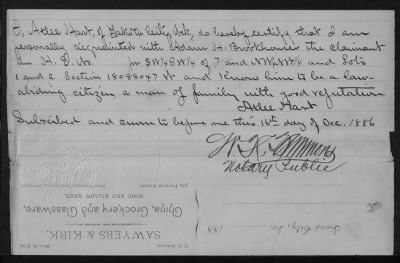 I, Atlee Hart, of Dakota City, Neb, do hereby certify that I am
personally acquainted with Adam H. Brookhouser the claimant
in H. E. No. for SW¼SW¼ of 7 and NW¼NW¼ and Lots
1 and 2 Section 18 and Know him to be a law-
abiding citizen, a man of family with good reputation
Atlee Hart
Subscribed and sworn to before me this 16th day of Dec. 1886
Notary Public
SAWYERS & KIRK,
China, Crockery and Glassware,
WOOD AND WILLOW WARE,
Sioux City, Ia. 188